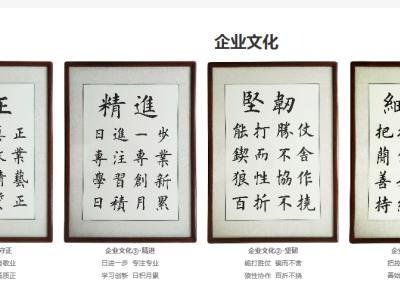 企业文化
正
正
業
藝
正
守正
敬业
质正
精進
日進一步
專注專業
學習創新
日積月累
企业文化③·精进
日进一步 专注专业
学习创新 日积月累
堅韌
能打勝仗
鍥而不舍
狼性協作
百折不撓
企业文化②·坚韧
能打胜仗 锲而不舍
狼性协作 百折不挠
細
把
簡
善
持
企
善始